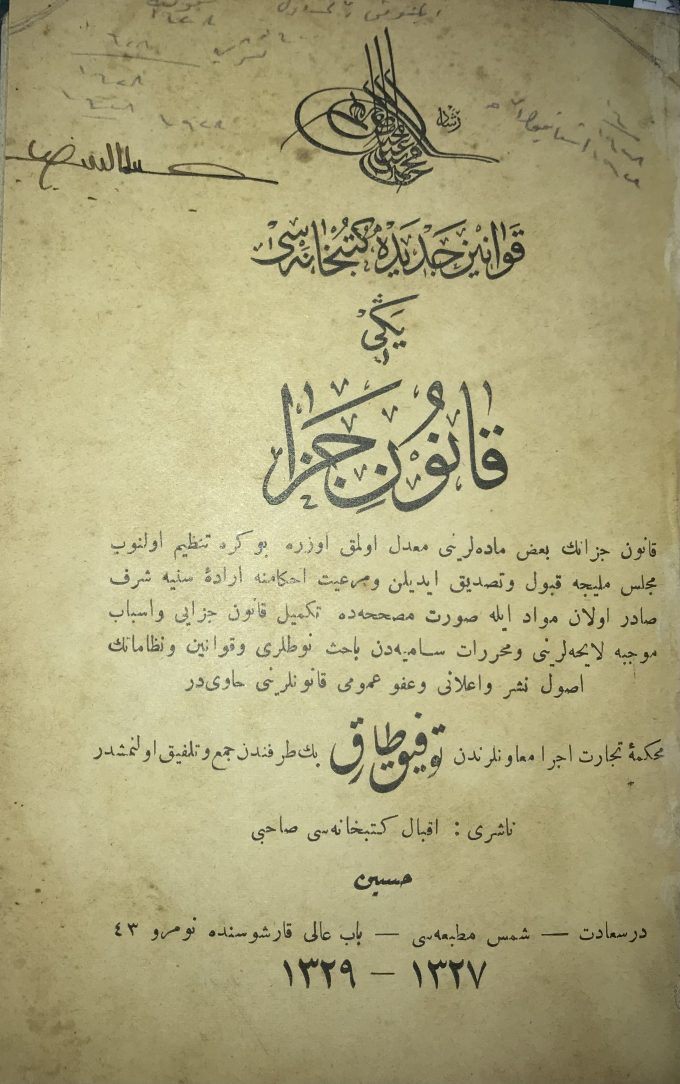 ١٣٢٨
رشاد
قوانين جديده كتبخانه‌سی
يڭی
قانون جزا
قانون جزانك بعض ماده‌لرينی معدل اولمق اوزره بو كره تنظيم اولنوب
مجلس مليجه قبول وتصديق ايديلن ومرعيت احكامنه ارادۀ سنيه شرف
صادر اولان مواد ايله صورت مصححه‌ده تكميل قانون جزايی واسباب
موجبه لايحه‌لرينی ومحررات ساميه‌دن باحث نوطلری وقوانين ونظاماتك
اصول نشر واعلانی وعفو عمومی قانونلرينی حاوی‌در
محكمۀ تجارت اجرا معاونلرندن توفيق طارق بك طرفندن جمع وتلفيق اولنمشدر
ناشری : اقبال كتبخانه‌سی صاحبی
حسين
درسعادت — شمس مطبعه‌سی — باب عالی قارشوسنده نومرو ٤٣
١٣٢٧ — ١٣٢٩